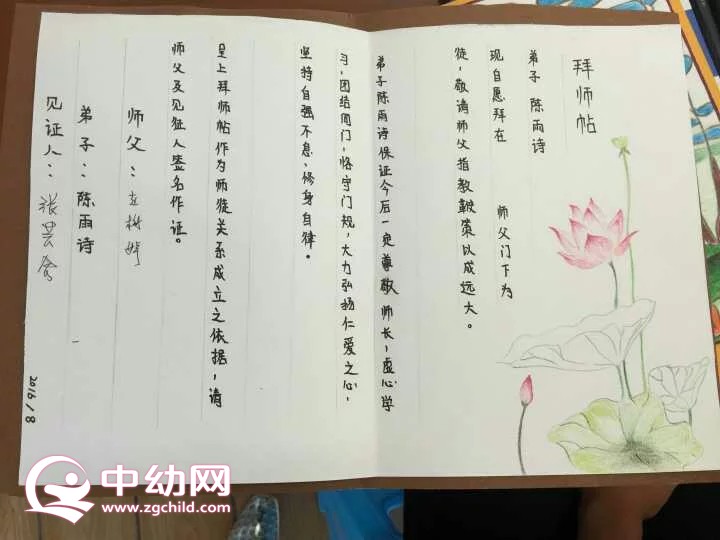 拜师帖
弟子 陈雨诗
现自愿拜在 师父门下为
徒，敬请师父指教鞭策以成远大。
弟子陈雨诗保证今后一定尊敬师长，虚心学
习，团结同门，恪守门规，大力弘扬仁爱之心，
坚持自强不息、修身自律。
呈上拜师帖作为师徒关系成立之依据，请
师父及见证人签名作证。
师父：
弟子：陈雨诗
见证人：张芸
2016/8
中幼网
www.zgchild.com